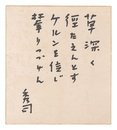 草深く
径たえんとす
ケルンを信じ
攀りつづけん